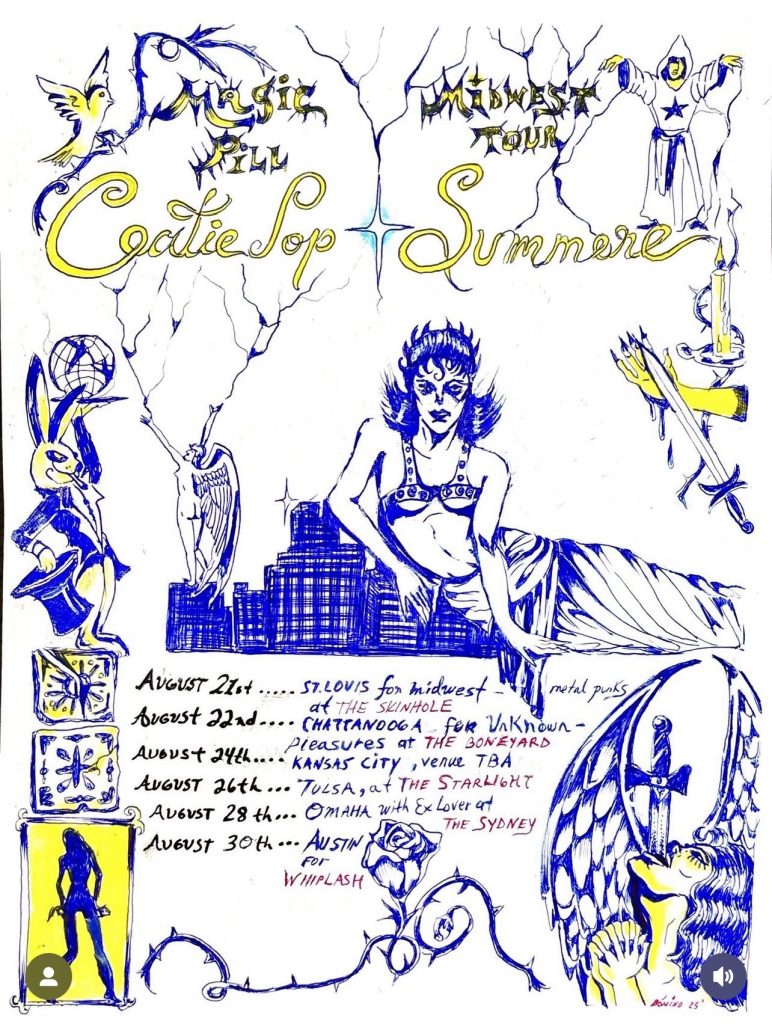 Magic
Pill
Midwest
Tour
Catie Pop
Summere
August 21st ..... St. Louis for midwest - metal punks
at THE SKINHOLE
August 22nd .... CHATTANOOGA for UnKnown -
Pleasures at THE BONEYARD
August 24th.... KANSAS CITY, venue TBA
August 26th ... TULSA, at THE STARLIGHT
August 28th... OMAHA with Ex Lover at
THE SYDNEY
August 30th... AUSTIN
FOR
WHIPLASH
BONINO 25'